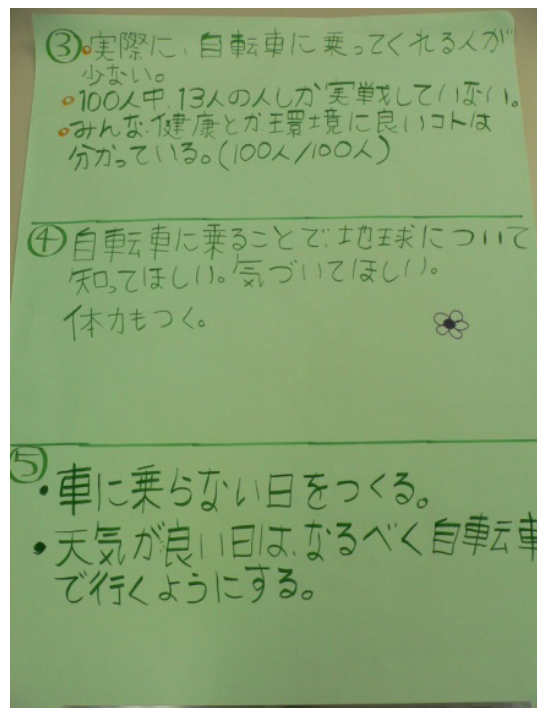 ③•実際に、自転車に乗ってくれる人が
少ない。
•100人中、13人の人しか実戦していない。
•みんな、健康とか環境に良いコトは
分かっている。(100人/100人)
④自転車に乗ることで、地球について
知ってほしい。気づいてほしい。
体力もつく。
⑤
•車に乗らない日をつくる。
•天気が良い日は、なるべく自転車
で行くようにする。